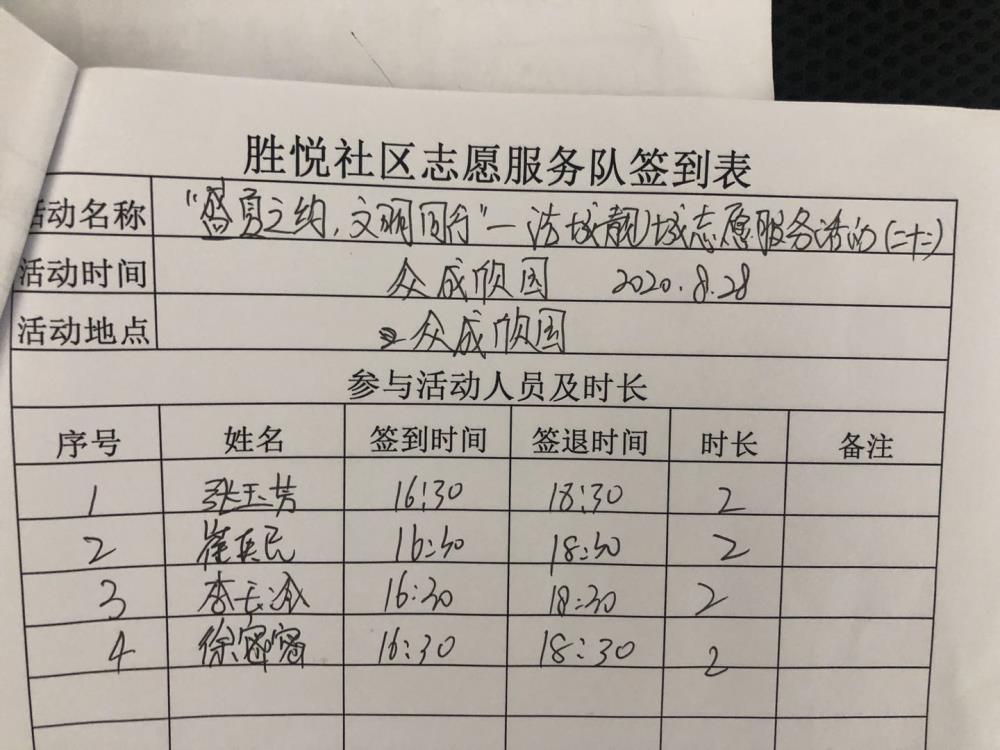 胜悦社区志愿服务队签到表
活动名称 "盛夏之约,文明同行"一洁城靓城志愿服务活动(二十二)
活动时间 众成欣园 2020.8.28
活动地点 众成欣园
参与活动人员及时长
序号 姓名 签到时间 签退时间 时长 备注
1 张玉芳 16:30 18:30 2
2 崔英民 16:30 18:30 2
3 李 16:30 18:30 2
4 徐密密 16:30 18:30 2